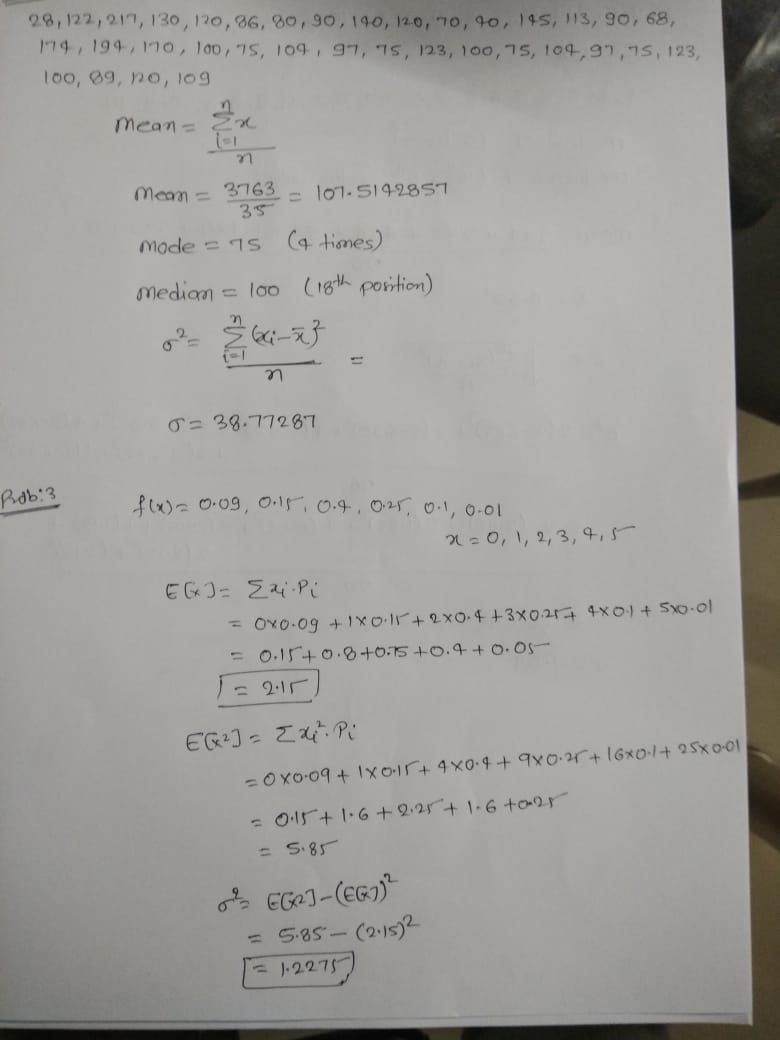 28, 122, 217, 130, 120, 86, 80, 90, 140, 120, 70, 40, 145, 113, 90, 68,
174, 194, 170, 100, 75, 104, 97, 75, 123, 100, 75, 104, 97, 75, 123,
100, 89, 120, 109
mean = Σ_{i=1}^{n} x / n
mean = 3763/35 = 107.5142857
mode = 75 (4 times)
median = 100 (18th position)
σ² = Σ_{i=1}^{n} (xi - x̄)² / n =
σ = 38.77287
Prob:3
f(x) = 0.09, 0.15, 0.4, 0.25, 0.1, 0.01
x = 0, 1, 2, 3, 4, 5
E[x] = Σxi·Pi
= 0x0.09 + 1x0.15 + 2x0.4 + 3x0.25 + 4x0.1 + 5x0.01
= 0.15 + 0.8 + 0.75 + 0.4 + 0.05
= 2.15
E[x²] = Σxi²·Pi
= 0x0.09 + 1x0.15 + 4x0.4 + 9x0.25 + 16x0.1 + 25x0.01
= 0.15 + 1.6 + 2.25 + 1.6 + 0.25
= 5.85
σ² = E[x2] - (E[x])²
= 5.85 - (2.15)²
= 1.2275